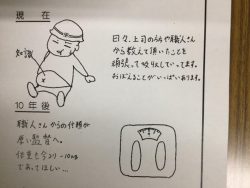 現在
日々、上司のみなや職人さん
から教えて頂いたことを
頑張って吸収していってます。
おぼえることがいっぱいあります。
知識
10年後
職人さんからの信頼が
厚い監督へ。
体重も今より -10kg
であってほしい…